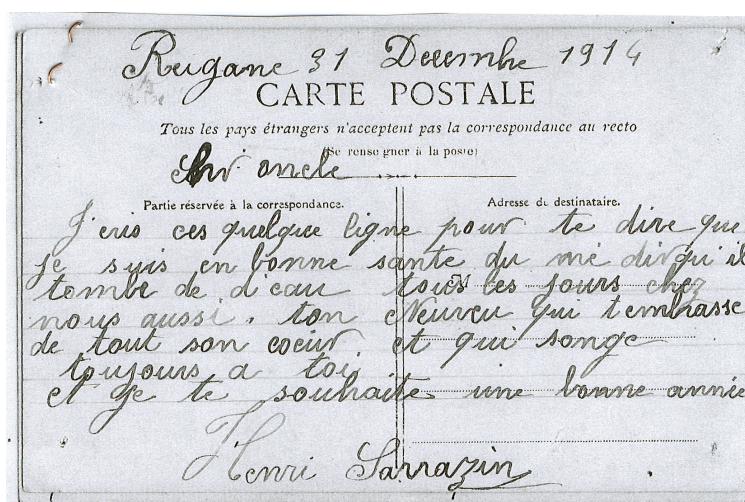 Reugane 31 Decembre 1914
CARTE POSTALE
Tous les pays étrangers n'acceptent pas la correspondance au recto
(Se renseigner à la poste)
oncle
Partie réservée à la correspondance.
Adresse du destinataire.
J'eris ces quelque ligne pour te dire que
je suis en bonne sante du me dir qu'il
tombe de d eau tous les jours chez
nous aussi. ton Neuveu qui t embrasse
de tout son coeur et qui songe
toujours a toi
et je te souhaite une bonne année
Henri Sarrazin